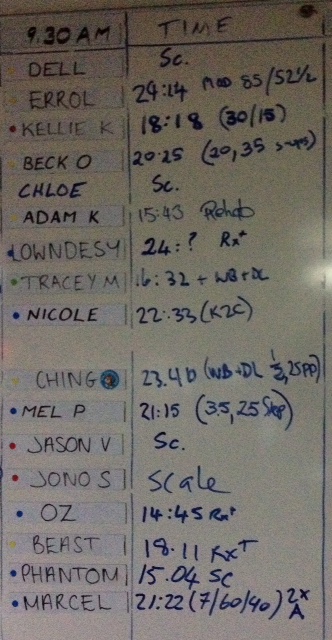 9.30 AM TIME
DELL Sc.
ERROL 24:14 MOD 85/52½
KELLIE K 18:18 (30/15)
BECK O 20:25 (20,35 s-ups)
CHLOE Sc.
ADAM K 15:43 Rehab
LOWNDESY 24:? Rx+
TRACEY M 16:32 + WB+DL
NICOLE 22:33 (K2C)
CHING 23.40 (WB+DL ½, 25PP)
MEL P 21:15 (35, 25 Step)
JASON V Sc.
JONO S Scale
OZ 14:45 Rx+
BEAST 18.11 Rx+
PHANTOM 15.04 SC
MARCEL 21:22 (7/60/40) 2x A